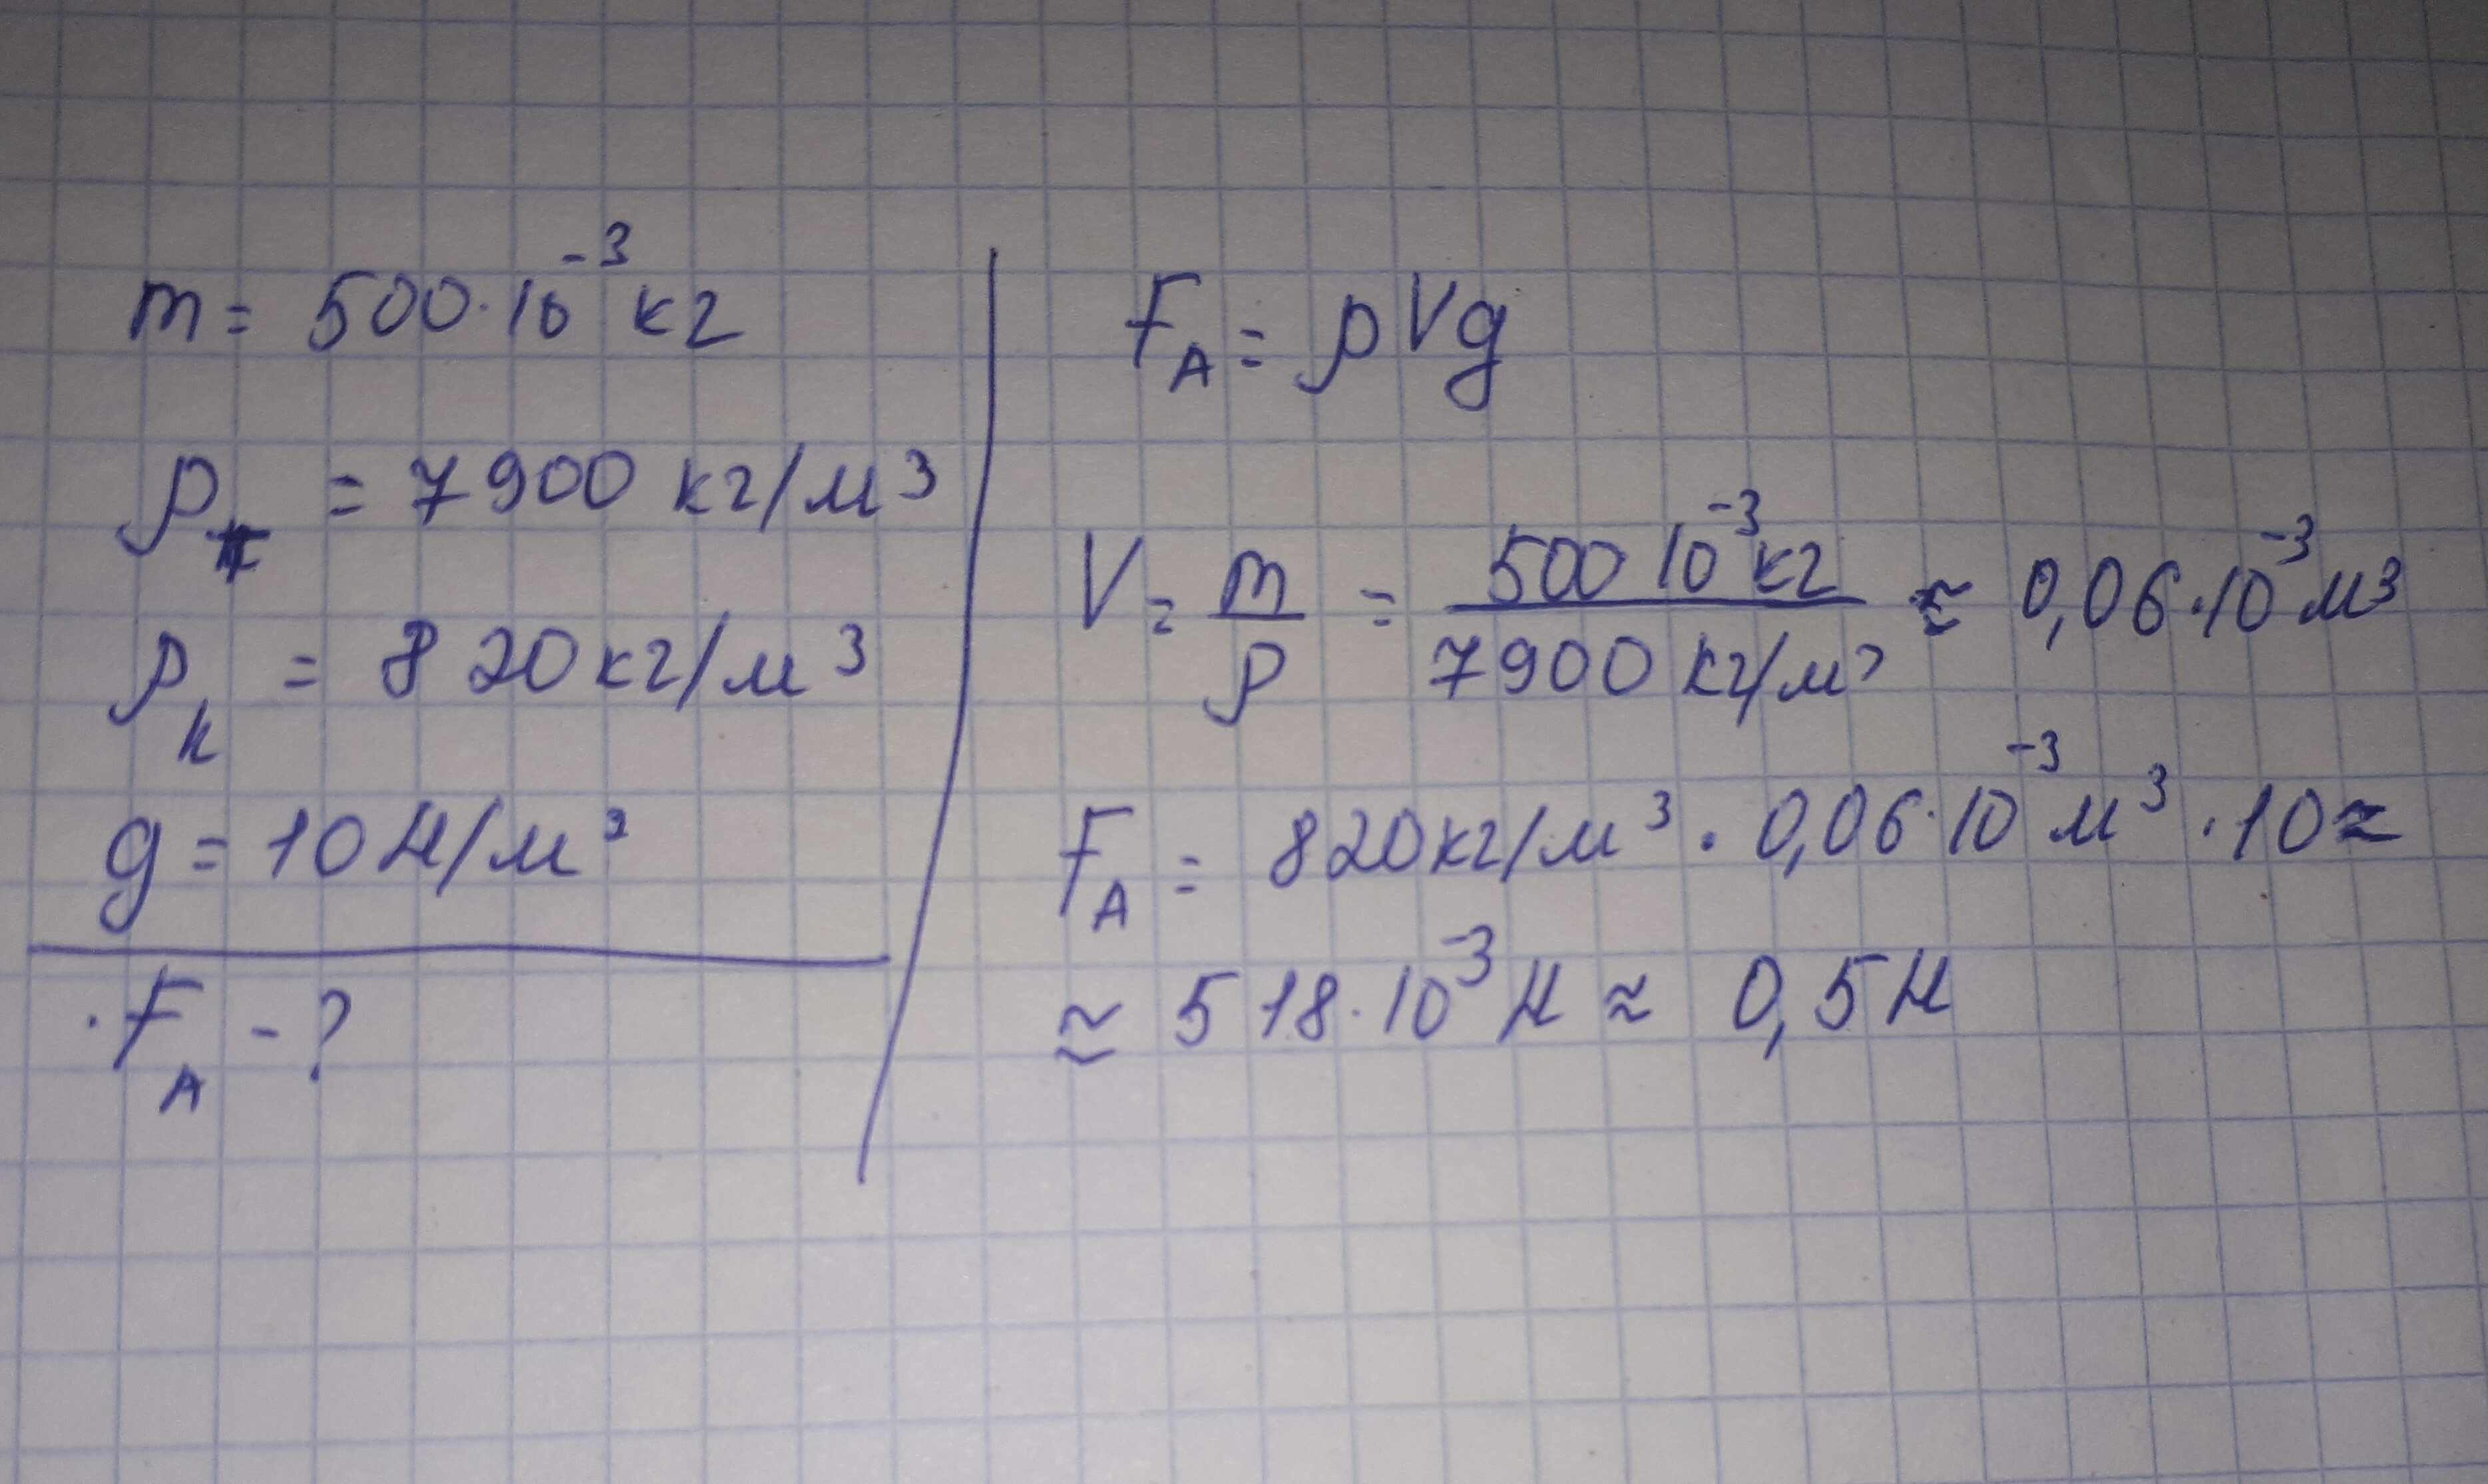 m = 500·10⁻³ кг
ρ = 7900 кг/м³
ρк = 820 кг/м³
g = 10 Н/м³
F_A - ?
F_A = ρVg
V = m/ρ = 500 10⁻³ кг / 7900 кг/м³ ≈ 0,06·10⁻³ м³
F_A = 820 кг/м³ · 0,06·10⁻³ м³ · 10 ≈
≈ 518·10⁻³ Н ≈ 0,5 Н